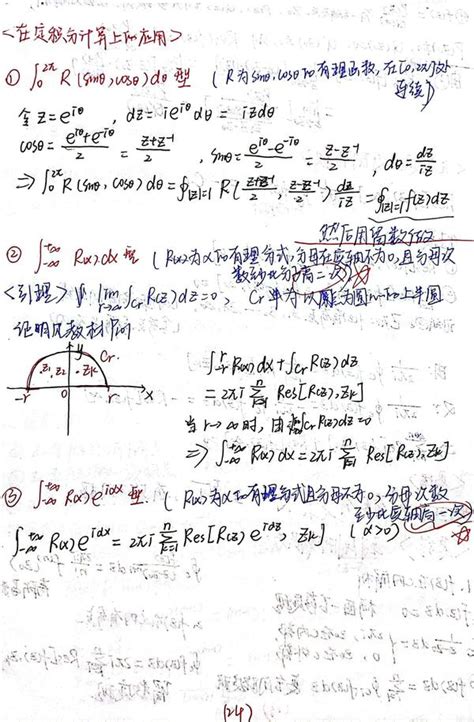 <在定积分计算上的应用>
① ∫₀^{2π} R(sinθ, cosθ)dθ 型 (R为sinθ, cosθ的有理函数, 在[0, 2π]处连续)
令 z=e^{iθ}, dz=ie^{iθ}dθ = izdθ
cosθ = (e^{iθ}+e^{-iθ})/2 = (z+z⁻¹)/2, sinθ = (e^{iθ}-e^{-iθ})/2 = (z-z⁻¹)/2, dθ = dz/iz
⇒ ∫₀^{2π} R(sinθ, cosθ)dθ = ∮_{|z|=1} R((z+z⁻¹)/2, (z-z⁻¹)/2) dz/iz = ∮_{|z|=1} f(z)dz
然后用留数
② ∫_{-∞}^{+∞} R(x)dx 型 (R(x)为x的有理分式, 分母在实轴不为0, 且分母次数至少比分子高二次)
<引理> lim_{r→∞} ∫_{Cr} R(z)dz=0, Cr 为以 为圆心的上半圆
证明见教材
y Cr
z₁, z₂ ·z_k
-r 0 r x
∫_{-r}^{r} R(x)dx + ∫_{Cr} R(z)dz
= 2πi Σ_{k=1}^{n} Res[R(z), z_k]
当 r→∞ 时, 由 ∫_{Cr} R(z)dz=0
⇒ ∫_{-∞}^{+∞} R(x)dx = 2πi Σ_{k=1}^{n} Res[R(z), z_k]
③ ∫_{-∞}^{+∞} R(x)e^{iαx} 型. (R(x)为x的有理分式且分母不为0, 分母次数至少比 高一次)
∫_{-∞}^{+∞} R(x)e^{iαx} = 2πi Σ_{k=1}^{n} Res[R(z)e^{iαz}, z_k] (α>0)
(24)